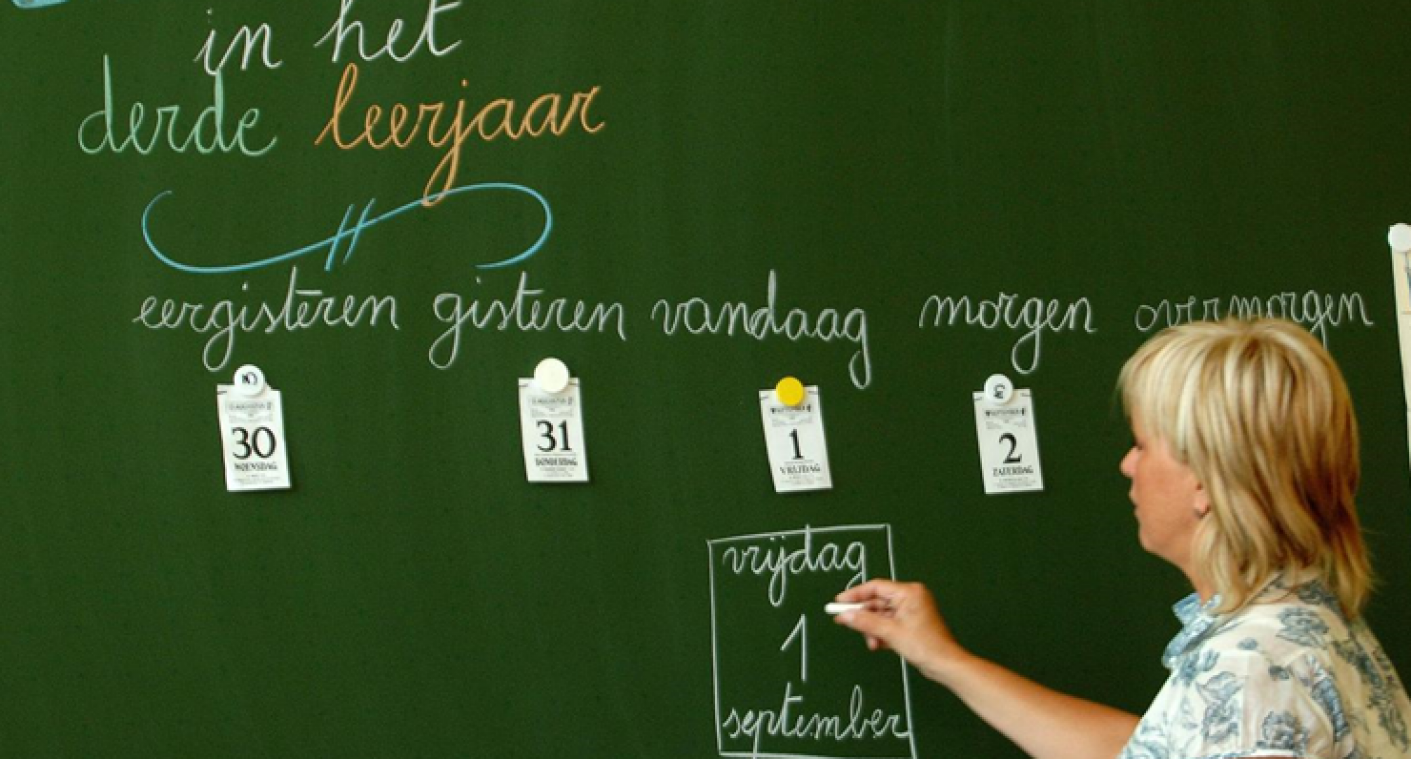 in het
derde leerjaar
eergisteren gisteren vandaag morgen overmorgen
30 31 1 2
WOENSDAG DONDERDAG VRIJDAG ZATERDAG
vrijdag
1
september